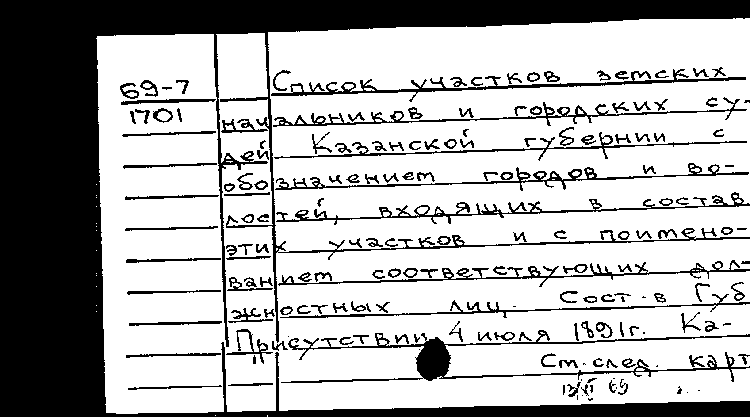 69-7
1701
Список участков земских
начальников и городских су-
дей Казанской губернии, с
обозначением городов и во-
лостей, входящих в состав
этих участков и с поимено-
ванием соответствующих дол-
жностных лиц. Сост. в Губ.
Присутствии 4 июля 1891г. Ка-
См. след. карт
13/XI 69